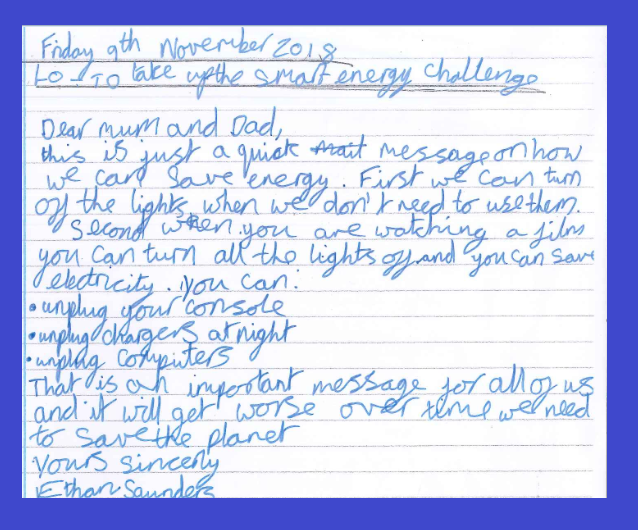 Friday 9th November 2018
LO - To take up the smart energy challenge
Dear mum and Dad,
this is just a quick message on how
we can save energy. First we can turn
off the lights when we don't need to use them.
Second when you are watching a film
you can turn all the lights off and you can save
electricity. You can:
• unplug your console
• unplug chargers at night
• unplug computers
That is an important message for all of us
and it will get worse over time we need
to save the planet
Yours sincerly
Ethan Saunders